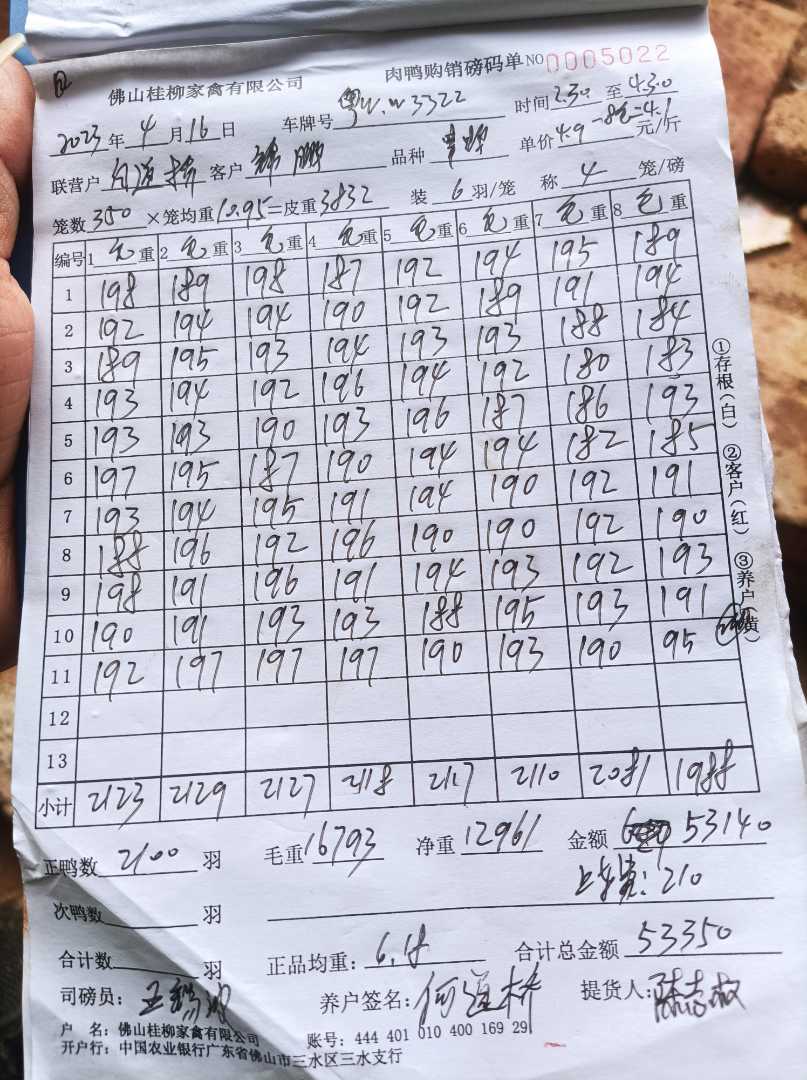 佛山桂柳家禽有限公司 肉鸭购销磅码单 NO 0005022
2023年4月16日 车牌号 粤W.W3322 时间 2.30 至 4.30
联营户 何道桥 客户 品种 单价 4.9 -8毛=4.1 元/斤
笼数 350 ×笼均重 10.95=皮重 3832 装 6 羽/笼 称 4 笼/磅
编号 1 毛重 2 毛重 3 毛重 4 毛重 5 毛重 6 毛重 7 毛重 8 毛重
1 198 189 198 187 192 194 195 189
2 192 194 194 190 192 189 191 194
3 189 195 193 194 193 193 188 184
4 193 194 192 196 194 192 180 183
5 193 193 190 193 196 187 186 193
6 197 195 187 190 194 194 182 185
7 193 194 195 191 194 190 192 191
8 188 196 192 196 190 190 192 190
9 198 191 196 191 194 193 192 193
10 190 191 193 193 188 195 193 191
11 192 197 197 197 190 193 190 95
12
13
小计 2123 2129 2127 2118 2117 2110 2081 1988
①存根(白) ②客户(红) ③养户(黄)
正鸭数 2100 羽 毛重 16793 净重 12961 金额 53140
上车费:210
次鸭数 羽
合计数 羽 正品均重: 6.18 合计总金额 53350
司磅员: 养户签名: 何道桥 提货人:
户 名: 佛山桂柳家禽有限公司 账号: 444 401 010 400 169 291
开户行: 中国农业银行广东省佛山市三水区三水支行